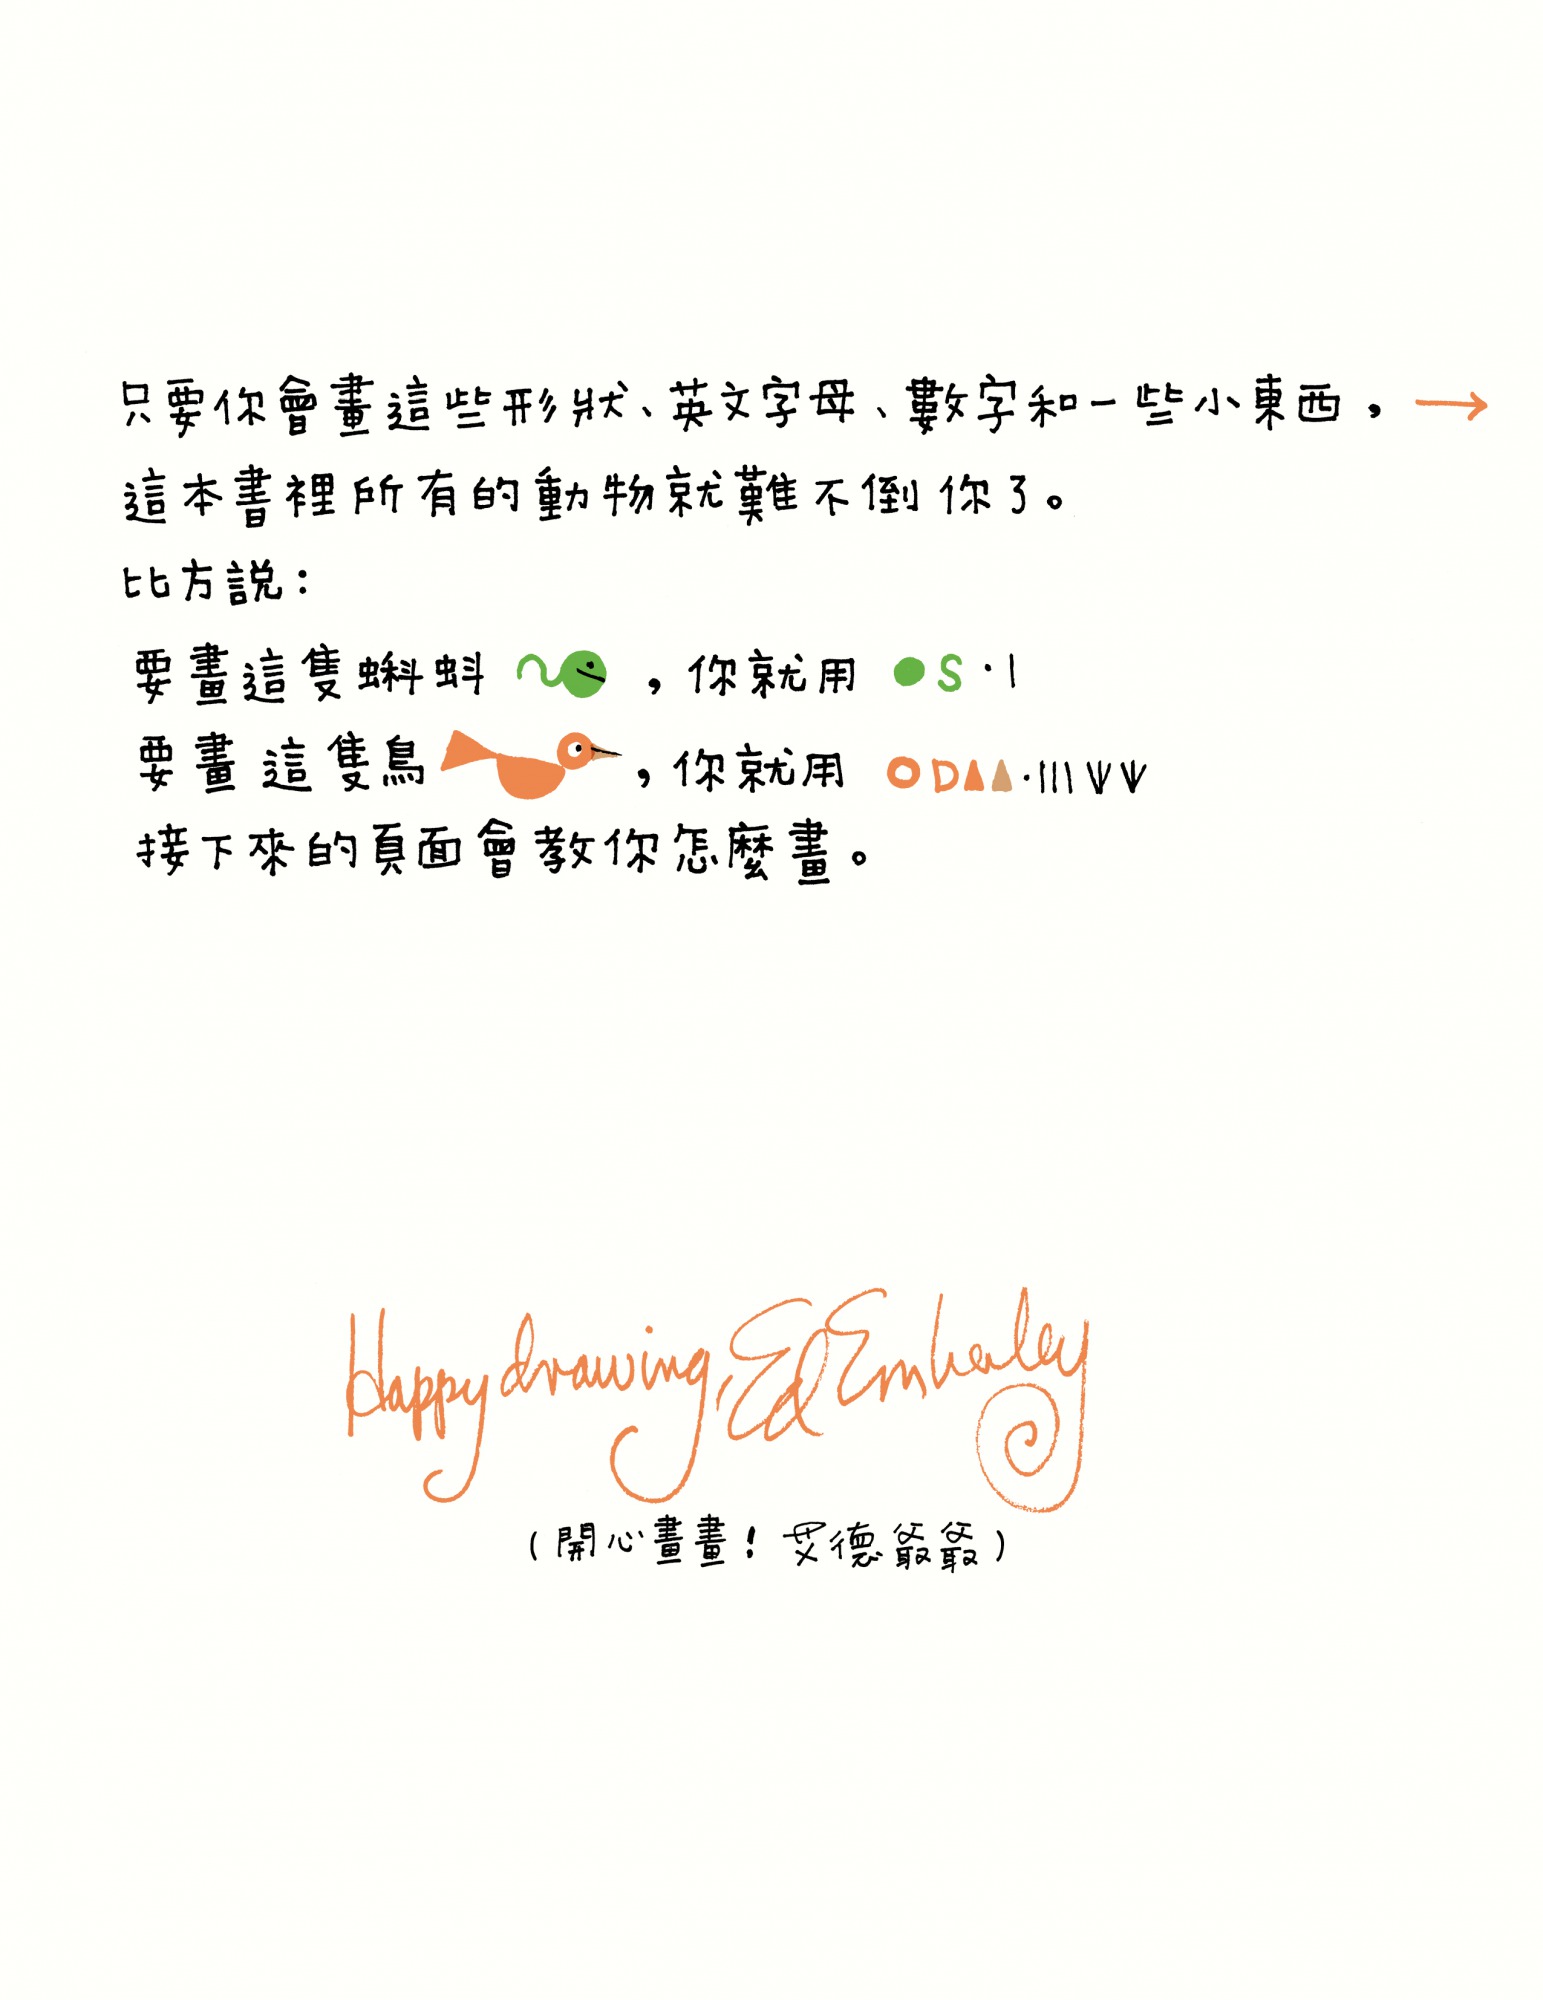 只要你會畫這些形狀、英文字母、數字和一些小東西，→
這本書裡所有的動物就難不倒你了。
比方說：
要畫這隻蝌蚪，你就用 ● S · |
要畫這隻鳥，你就用 O D ▲ ▲ · | | | ѱ ѱ
接下來的頁面會教你怎麼畫。
Happy drawing, Ed Emberley
（開心畫畫！艾德爺爺）